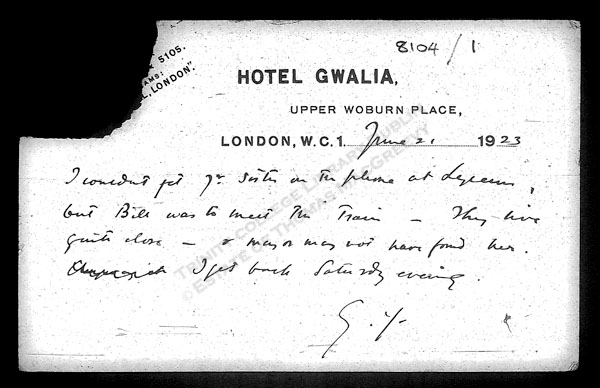 5105.
AMS:
L, LONDON".
8104/1
HOTEL GWALIA,
UPPER WOBURN PLACE,
LONDON, W.C.1. June 21 1923
I couldn't get yr sister on the phone at Lyceum,
but Bill was to meet the Train – They live
quite close – & may or may not have found her.
I get back Saturday evening.
G.Y.
TRINITY COLLEGE LIBRARY DUBLIN
© ESTATE OF THOMAS MACGREEVY